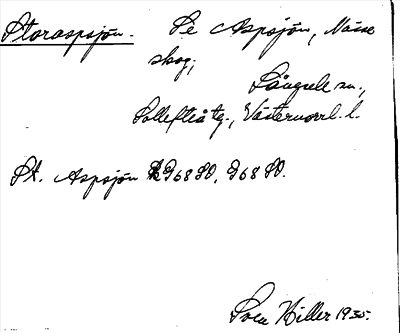 Storaspsjön. Se Aspsjön, Nässe
skog,
Långsele sn.,
Sollefteå tg., Västernorrl. l.
St. Aspsjön K968 SO, J968 SV.
Sven Hiller 1935.